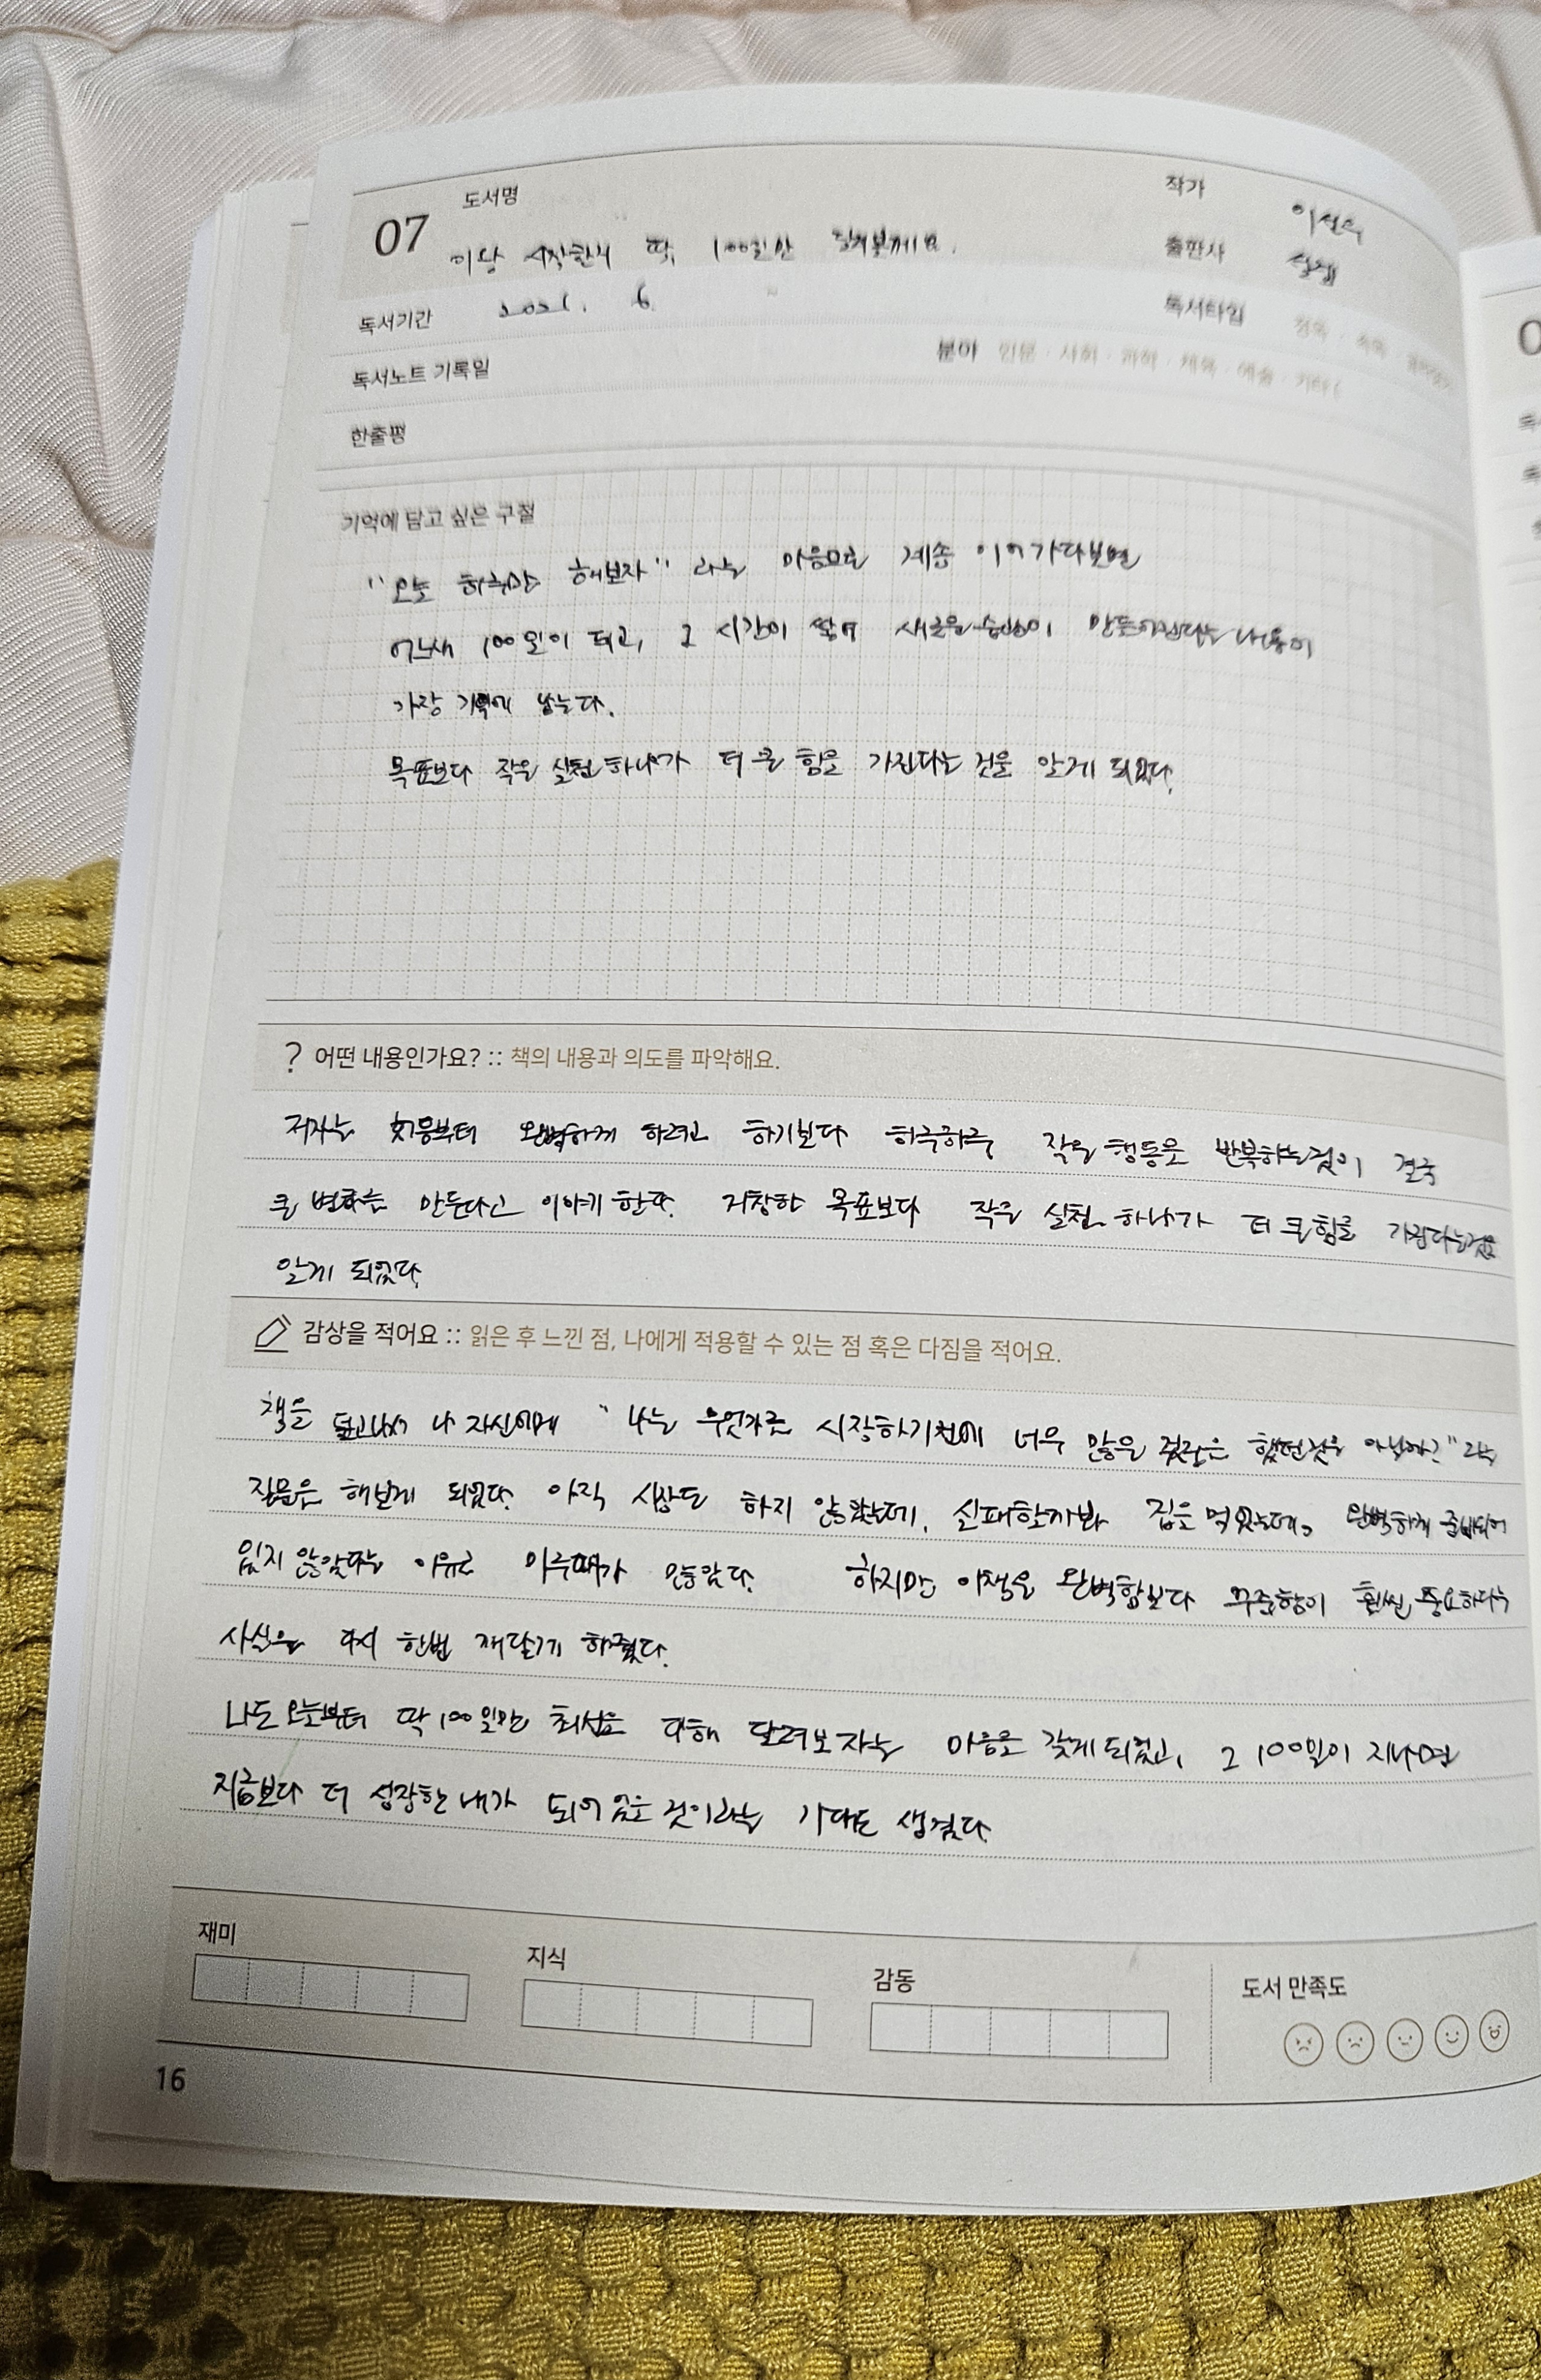 07
도서명
이왕 시작한거 딱, 100일만 달려볼게요.
작가 이선우
출판사
독서기간 6
독서타입 정독 · 속독 ·
독서노트 기록일
분야 인문 · 사회 · 과학 · 체육 · 예술 · 기타 (
한줄평
기억에 담고 싶은 구절
"오늘 하루만 해보자" 라는 마음으로 계속 이어가다보면
어느새 100일이 되고, 그 시간이 쌓여 새로운 습관이 만들어진다는 내용이
가장 기억에 남는다.
목표보다 작은 실천 하나가 더 큰 힘을 가진다는 것을 알게 되었다.
? 어떤 내용인가요? :: 책의 내용과 의도를 파악해요.
저자는 처음부터 완벽하게 하려고 하기보다 하루하루 작은 행동을 반복하는것이 결국
큰 변화를 만든다고 이야기 한다. 거창한 목표보다 작은 실천 하나가 더 큰힘을 가진다는것을
알게 되었다.
감상을 적어요 :: 읽은 후 느낀 점, 나에게 적용할 수 있는 점 혹은 다짐을 적어요.
책을 덮고나서 나 자신에게 "나는 무언가를 시작하기전에 너무 많은 걱정을 했던것은 아닐까?" 라는
질문을 해보게 되었다. 아직 시작도 하지 않았는데, 실패할까봐 겁을 먹었는데. 완벽하게 준비되어
있지 않았다는 이유로 미루때가 많았다. 하지만 이책은 완벽함보다 꾸준함이 훨씬 중요하다는
사실을 다시 한번 깨닫게 해줬다.
나도 오늘부터 딱 100일만 최선을 다해 달려보자는 마음을 갖게 되었고, 그 100일이 지나면
지금보다 더 성장한 내가 되어 있을 것이라는 기대도 생겼다.
재미 지식 감동 도서 만족도
16